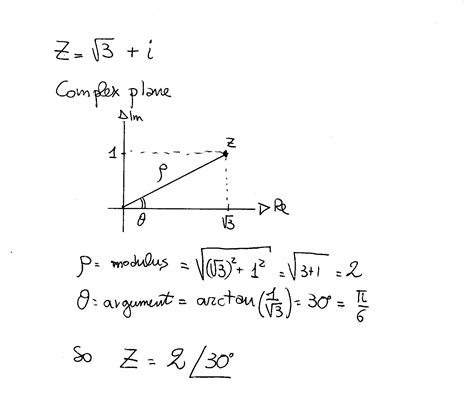 Z = √3 + i
Complex plane
Im
1
ρ
Z
θ
√3
Re
ρ = modulus = √((√3)² + 1²) = √(3+1) = 2
θ = argument = arctan(1/√3) = 30° = π/6
So Z = 2 ∠30°